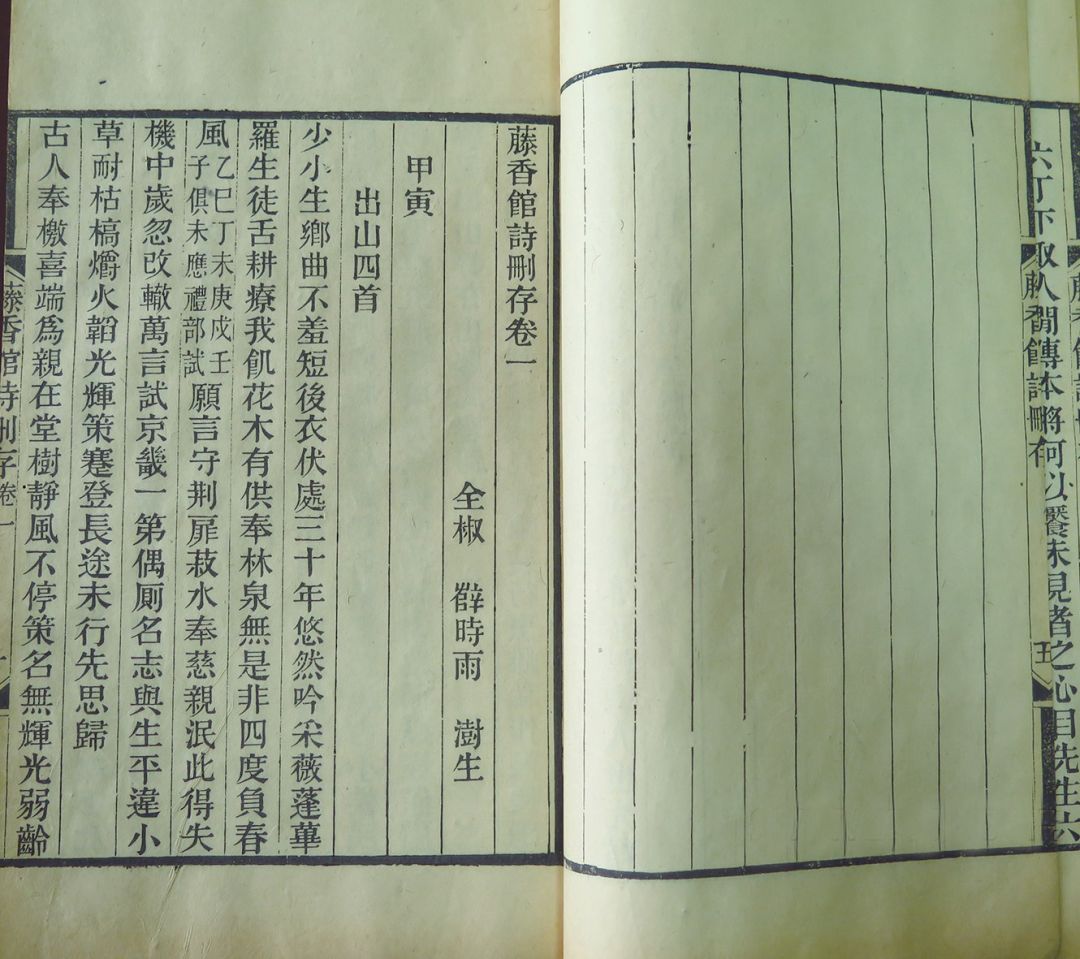 六丁下取人間傳本將何以饜未見者之心目先生六
藤香館詩刪存
藤香館詩刪存卷一
全椒 薛時雨 澍生
甲寅
出山四首
少小生鄉曲不羞短後衣伏處三十年悠然吟采薇蓬蓽
羅生徒舌耕療我飢花木有供奉林泉無是非四度負春
風乙巳丁未庚戌壬子俱未應禮部試願言守荆扉菽水奉慈親泯此得失
機中歲忽改轍萬言試京畿一第偶厠名志與生平違小
草耐枯槁爝火韜光輝策蹇登長途未行先思歸
古人奉檄喜端爲親在堂樹靜風不停策名無輝光弱齡
藤香館詩刪存 卷一